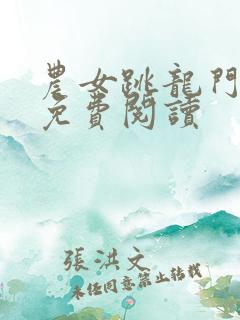 農女跳龍門
免費閱讀
張洪文
未經同意禁止轉載